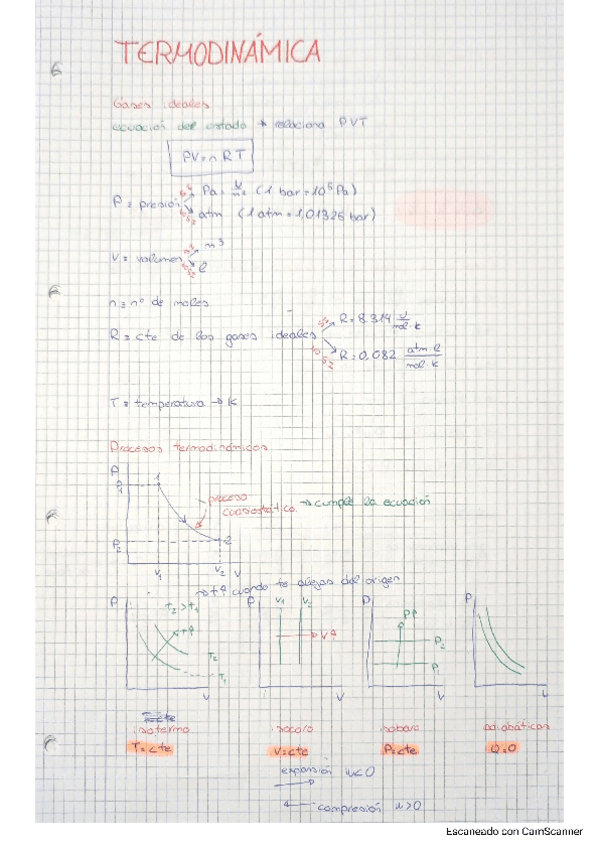 TERMODINÁMICA
Gases ideales
ecuación del estado → relaciona PVT
PV = n RT
P = presión
Pa = (1 bar = 10⁵ Pa)
atm (1 atm = 1,01325 bar)
V = volumen
m³
l
n = nº de moles
R = cte de los gases ideales
R = 8.314 J/mol·K
R = 0,082 atm·l/mol·K
T = temperatura → K
Procesos termodinámicos
P
P1
1
proceso cuasiestático → cumple la ecuación
P2
2
V1 V2 V
→ t↑ cuando te alejas del origen
P T2 > T1 P V1 V2 P P↑ P
T↑ V↑ P2
T2 P1
T1
V V V V
isotermo isocoro isobaro adiabáticas
T = cte V = cte P = cte Q = 0
expansión w<0
→
← compresión w>0
Escaneado con CamScanner